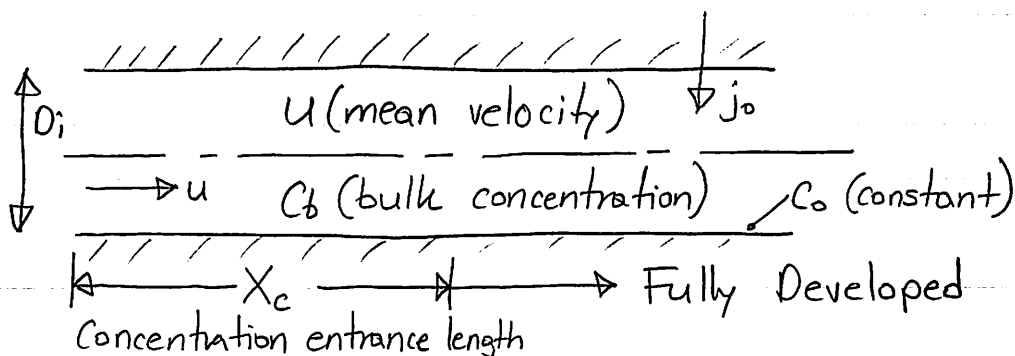 Di
U (mean velocity)
jo
u
Cb (bulk concentration)
Co (constant)
Xc
Fully Developed
Concentration entrance length